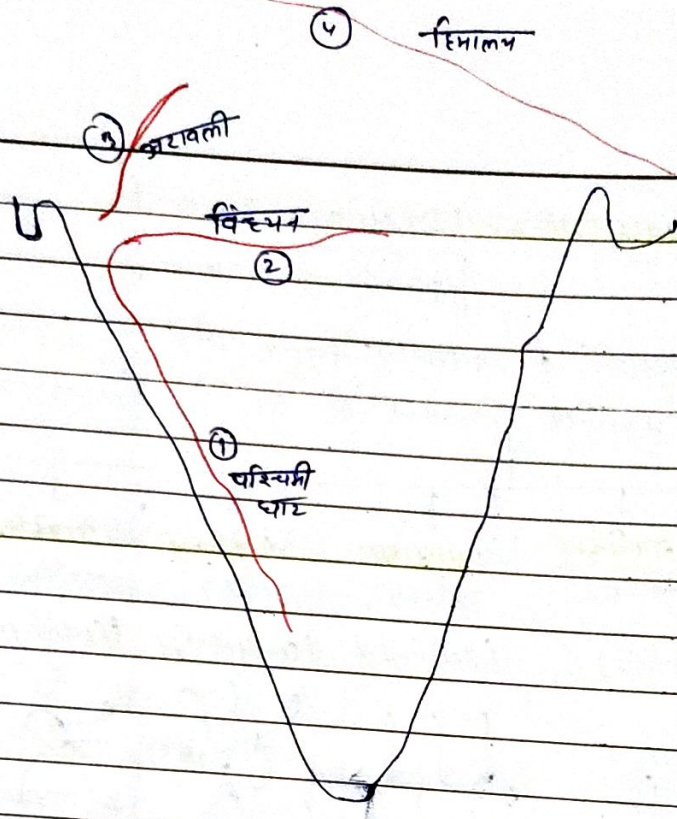 ④ हिमालय
③ अरावली
विंध्यन
②
①
पश्चिमी
घाट